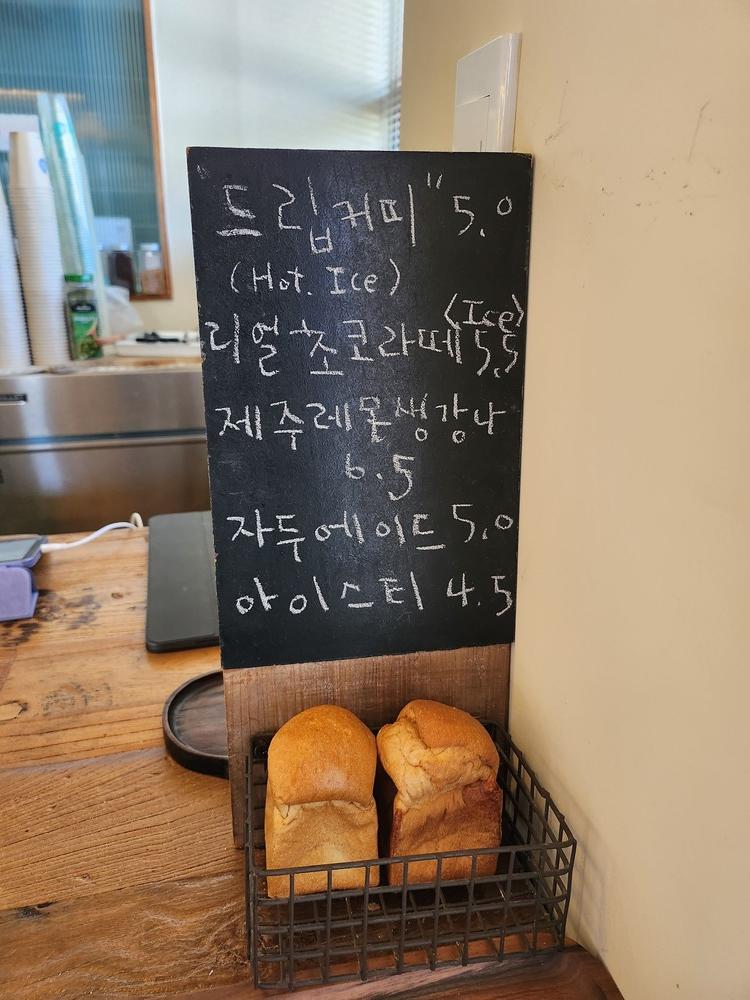 "드립커피" 5.0
(Hot. Ice)
<Ice>
리얼초코라떼 5.5
제주레몬생강나
6.5
자두에이드 5.0
아이스티 4.5